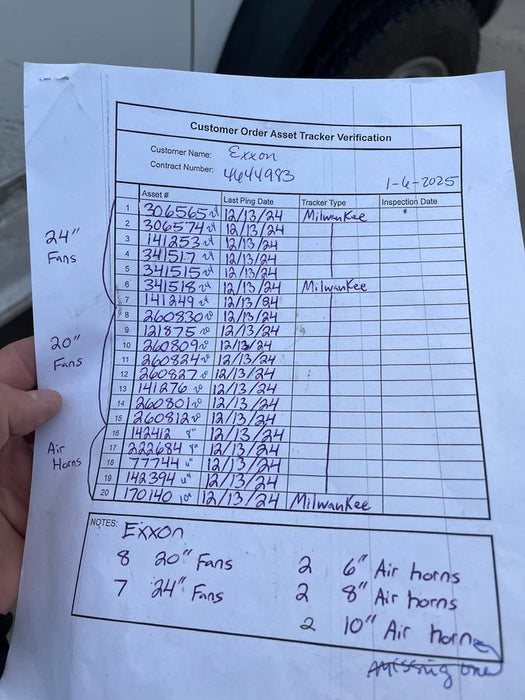 Customer Order Asset Tracker Verification
Customer Name: Exxon
Contract Number: 4644983
1-6-2025
Asset # Last Ping Date Tracker Type Inspection Date
24" Fans
1 306565 24 12/13/24 Milwaukee
2 306574 24 12/13/24
3 141253 24 12/13/24
4 341517 24 12/13/24
5 341515 24 12/13/24
6 341518 24 12/13/24 Milwaukee
7 141249 24 12/13/24
20" Fans
8 260830 20 12/13/24
9 121875 20 12/13/24
10 260809 20 12/13/24
11 260824 20 12/13/24
12 260827 12/13/24
13 141276 20 12/13/24
14 260801 20 12/13/24
15 260812 20 12/13/24
Air Horns
16 142412 8" 12/13/24
17 222684 8" 12/13/24
18 77744 12/13/24
19 142394 12/13/24
20 170140 10" 12/13/24 Milwaukee
NOTES: Exxon
8 20" Fans 2 6" Air horns
7 24" Fans 2 8" Air horns
2 10" Air horns
missing one